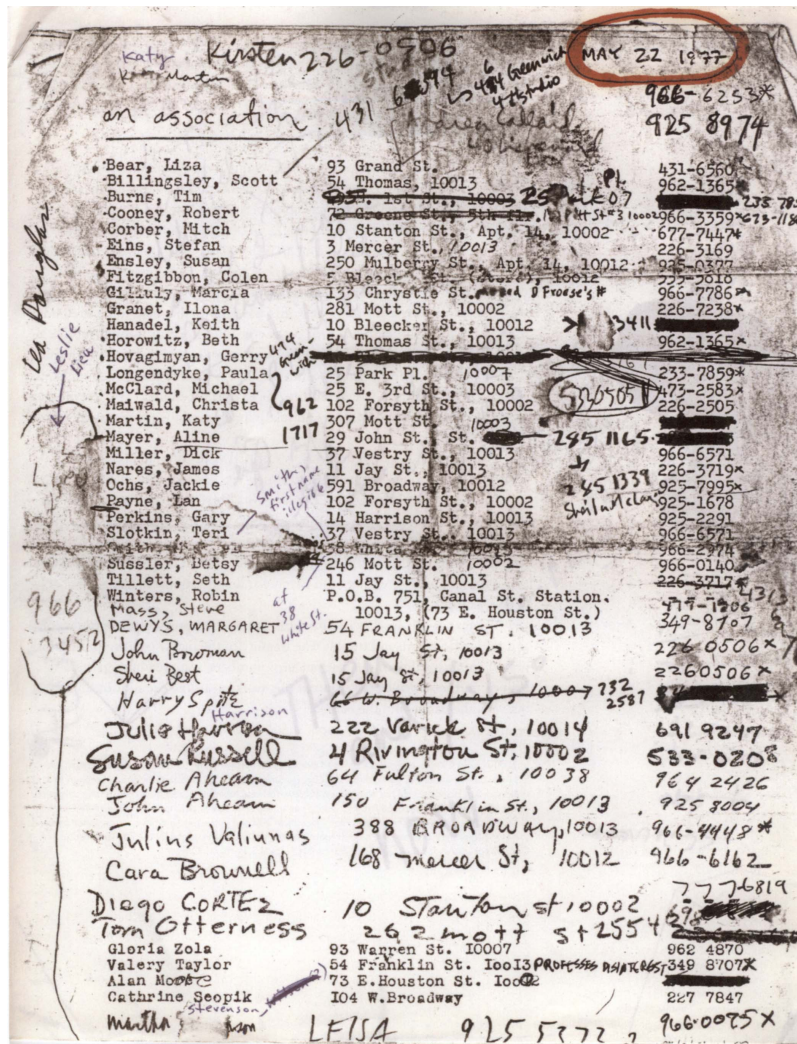 Katy Kirsten 226-0906 MAY 22 1977
Martin
431 484 Greenwich 966-6253*
studio
an association 925 8974
Bear, Liza 93 Grand St. 431-6560
Billingsley, Scott 54 Thomas, 10013 962-1365*
Burns, Tim 1st St., 10003 25 Park Pl. 07
Cooney, Robert 72 Greene St., 5th fl. 10002 966-3359*
Corber, Mitch 10 Stanton St., Apt. 14, 10002 677-7447*
Eins, Stefan 3 Mercer St., 10013 226-3169
Ensley, Susan 250 Mulberry St., Apt. 14, 10012
Fitzgibbon, Colen 5 Bleecker St. 10012
Gilluly, Marcia 133 Chrystie St. D Froese's # 966-7786*
Granet, Ilona 281 Mott St., 10002 226-7238*
Hanadel, Keith 10 Bleecker St., 10012 3411
Horowitz, Beth 54 Thomas St., 10013 962-1365*
Hovagimyan, Gerry 474 Greenwich
Longendyke, Paula 25 Park Pl. 10007 233-7859*
McClard, Michael 25 E. 3rd St., 10003 473-2583*
Maiwald, Christa 102 Forsyth St., 10002 226-2505
962 1717
Martin, Katy 307 Mott St. 10003
Mayer, Aline 29 John St., St. 285 1165
Miller, Dick 37 Vestry St., 10013 966-6571
Nares, James 11 Jay St., 10013 226-3719*
Ochs, Jackie 591 Broadway, 10012 925-7995*
285 1339
Payne, Lan 102 Forsyth St., 10002 925-1678
Perkins, Gary 14 Harrison St., 10013 925-2291
Slotkin, Teri 37 Vestry St., 10013 966-6571
38 White St. 10013 966-2974
Smith, first name illegible
at 38 White St.
Sussler, Betsy 246 Mott St. 10002 966-0140
Tillett, Seth 11 Jay St., 10013 226-3717*
Winters, Robin P.O. B. 751, Canal St. Station
10013, (73 E. Houston St.)
Mass, Steve
DEWYS, MARGARET 54 FRANKLIN ST. 10013 349-8707
John Bowman 15 Jay St, 10013 226 0506*
Sheri Best 15 Jay St, 10013 2260506*
Harry Spitz 66 W. Broadway, 10007 732 2587
Julie Harrison 222 Varick St, 10014 691 9247
Harrison
Susan Russell 4 Rivington St, 10002 533-0208
Charlie Ahearn 64 Fulton St., 10038 964 2426
John Ahearn 150 Franklin St., 10013 925 8004
Julius Valiunas 388 BROADWAY, 10013 966-4448*
Cara Brownell 168 mercer St, 10012 966-6162
777-6819
Diego CORTEZ 10 Stanton St 10002
Tom Otterness 262 mott St
Gloria Zola 93 Warren St. I0007 962 4870
Valery Taylor 54 Franklin St. I00I3 PROFESSES DISINTEREST 349 8707*
Alan Moore 73 E.Houston St. I00I2
Cathrine Seopik I04 W.Broadway 227 7847
Stevenson
martha LEISA 925 5372 966-0075*
Leslie
966 3452